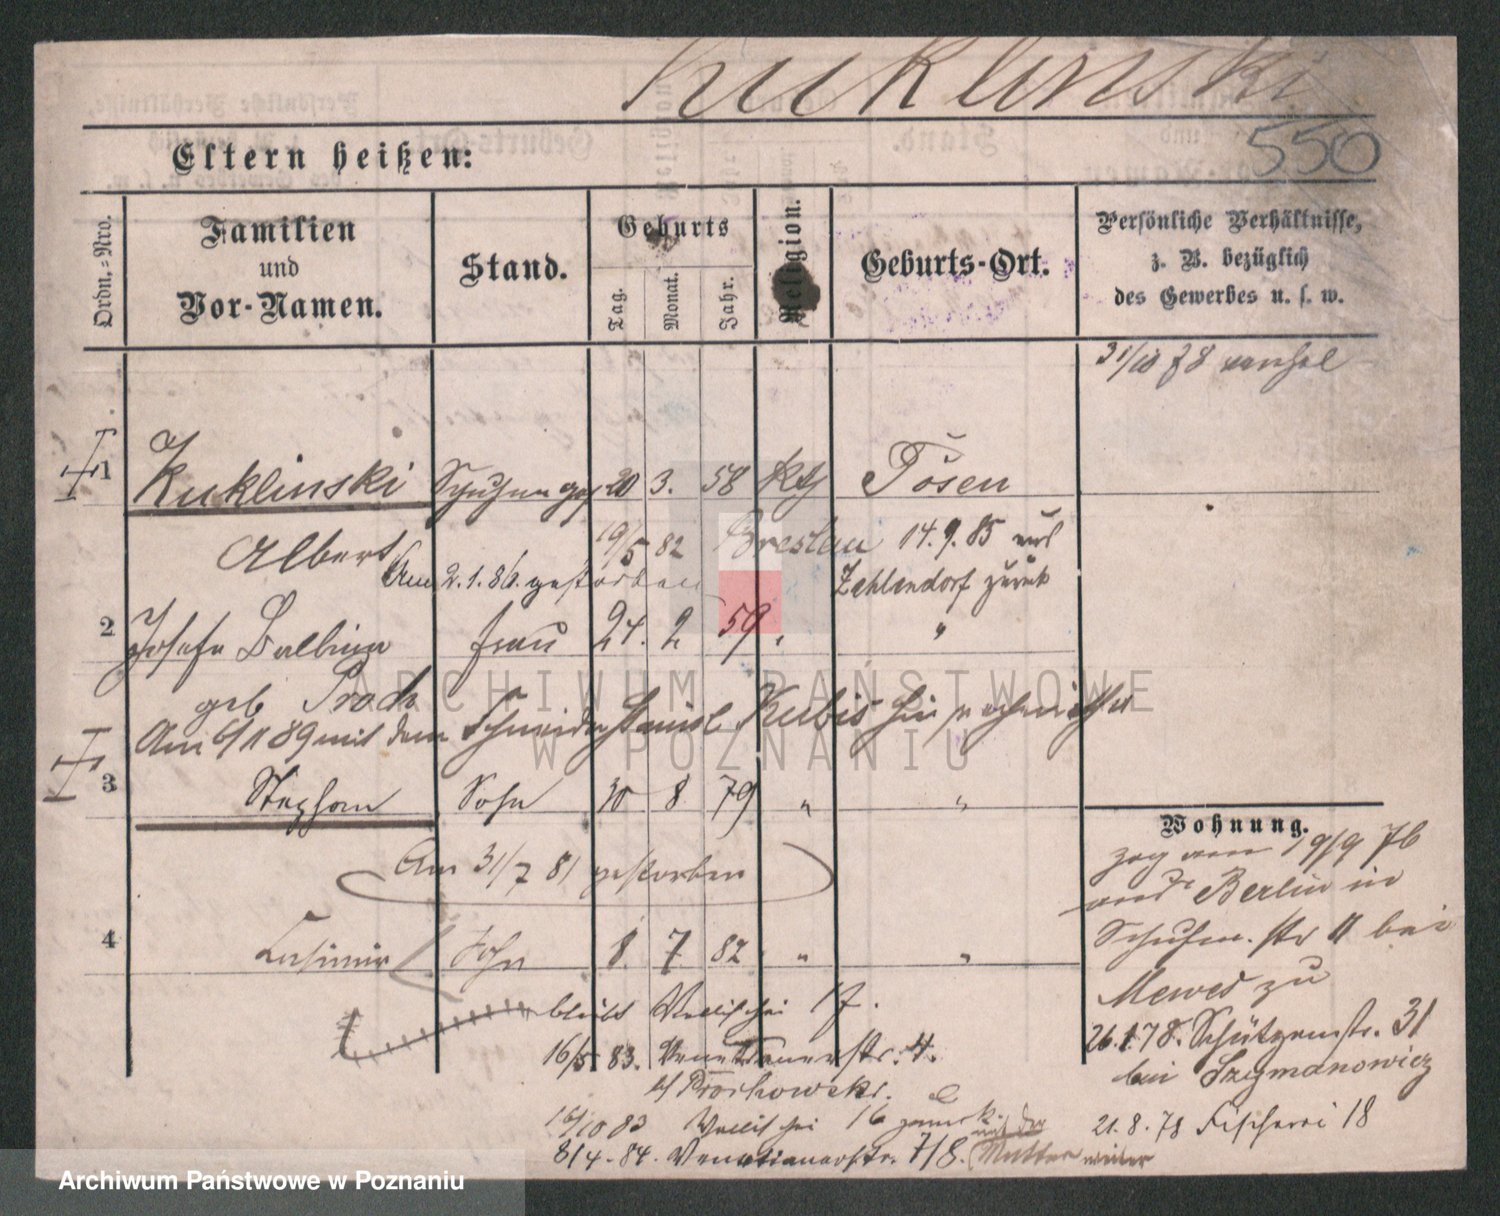 Kuklinski
550
Eltern heißen:
Ordn.-Nro.
Familien
und
Vor-Namen.
Stand.
Geburts
Tag.
Monat.
Jahr.
Religion.
Geburts-Ort.
Persönliche Verhältnisse,
z. B. bezüglich
des Gewerbes u. s. w.
31/10 78
1 Kuklinski 20 3. 58 kth Posen
Albert 19/5 82 Breslau 14.9.85 aus
Am 2.1.86. gestorben Zehlendorf zurück
2 Josefa Balbina Frau 24. 2 59 " "
geb Proch
Am 6/11 89 mit dem Schneider Kubis hier
3 Stephan Sohn 30 8 79 " "
Am 31/7 81 gestorben
4 Casimir Sohn 8. 7 82 " "
bleibt 17.
16/5 83. Venetianerstr. 4.
b/
16/10 83 16
8/4. 84. Venetianerstr. 7/8. mit der Mutter weiter
Wohnung.
zog am 19/9 76
aus Berlin in
Schuhm. str 11 bei
Mewes zu
26.1.78. Schützenstr. 31
bei Szymanowicz
21.8.78 Fischerei 18
ARCHIWUM PAŃSTWOWE
W POZNANIU
Archiwum Państwowe w Poznaniu